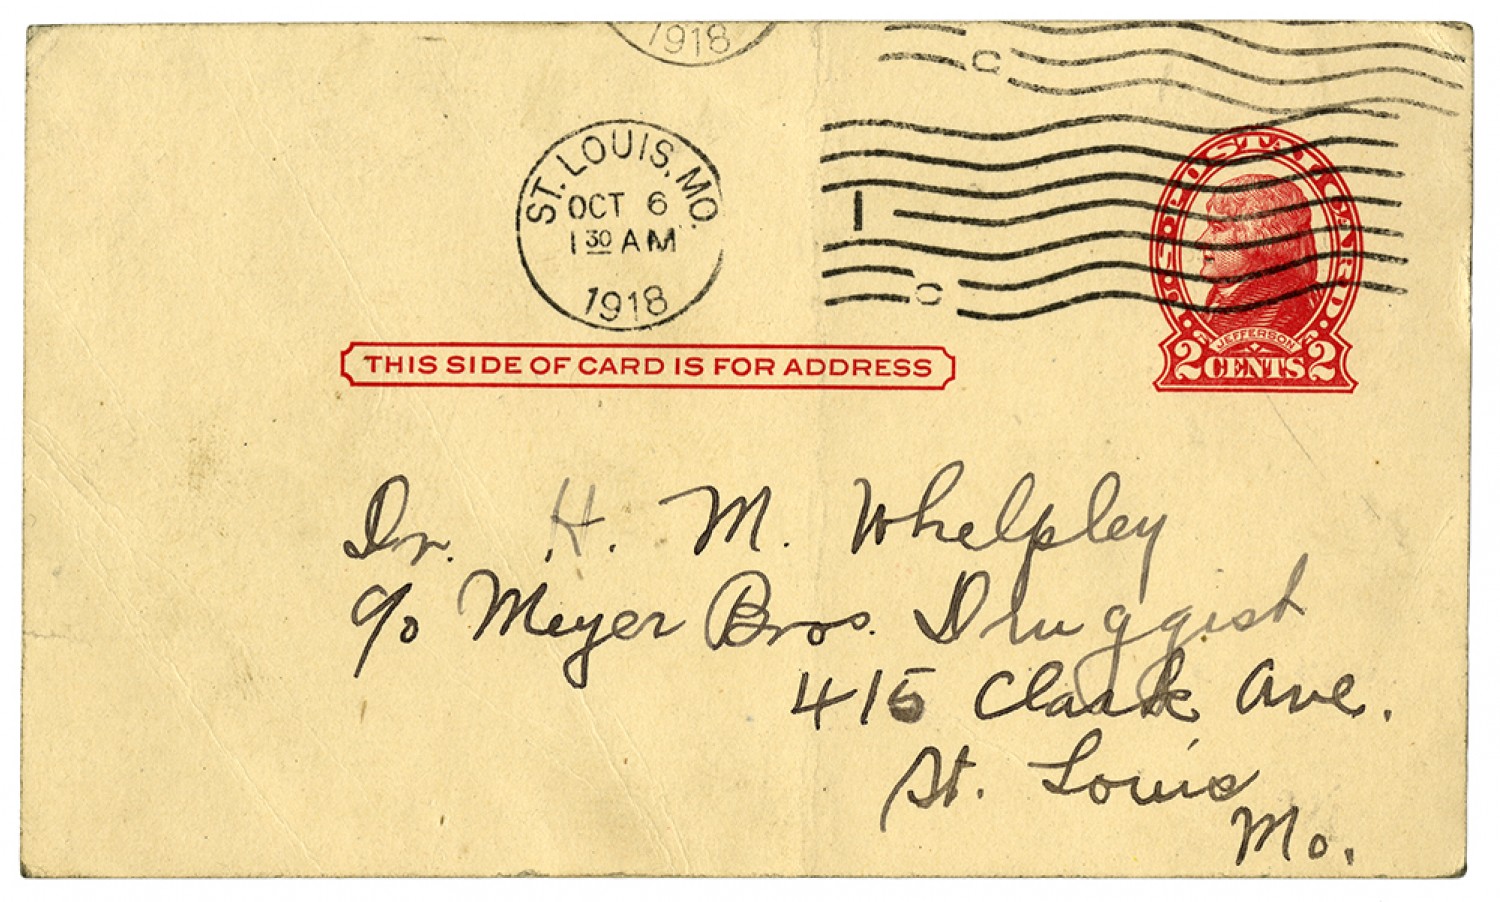 1918
C
ST. LOUIS, MO.
OCT 6
1 30 AM
1918
1
C
U.S. POSTAL CARD
JEFFERSON
2 CENTS 2
THIS SIDE OF CARD IS FOR ADDRESS
Dr. H. M. Whelpley
c/o Meyer Bros. Druggist
415 Clark Ave.
St. Louis
Mo.